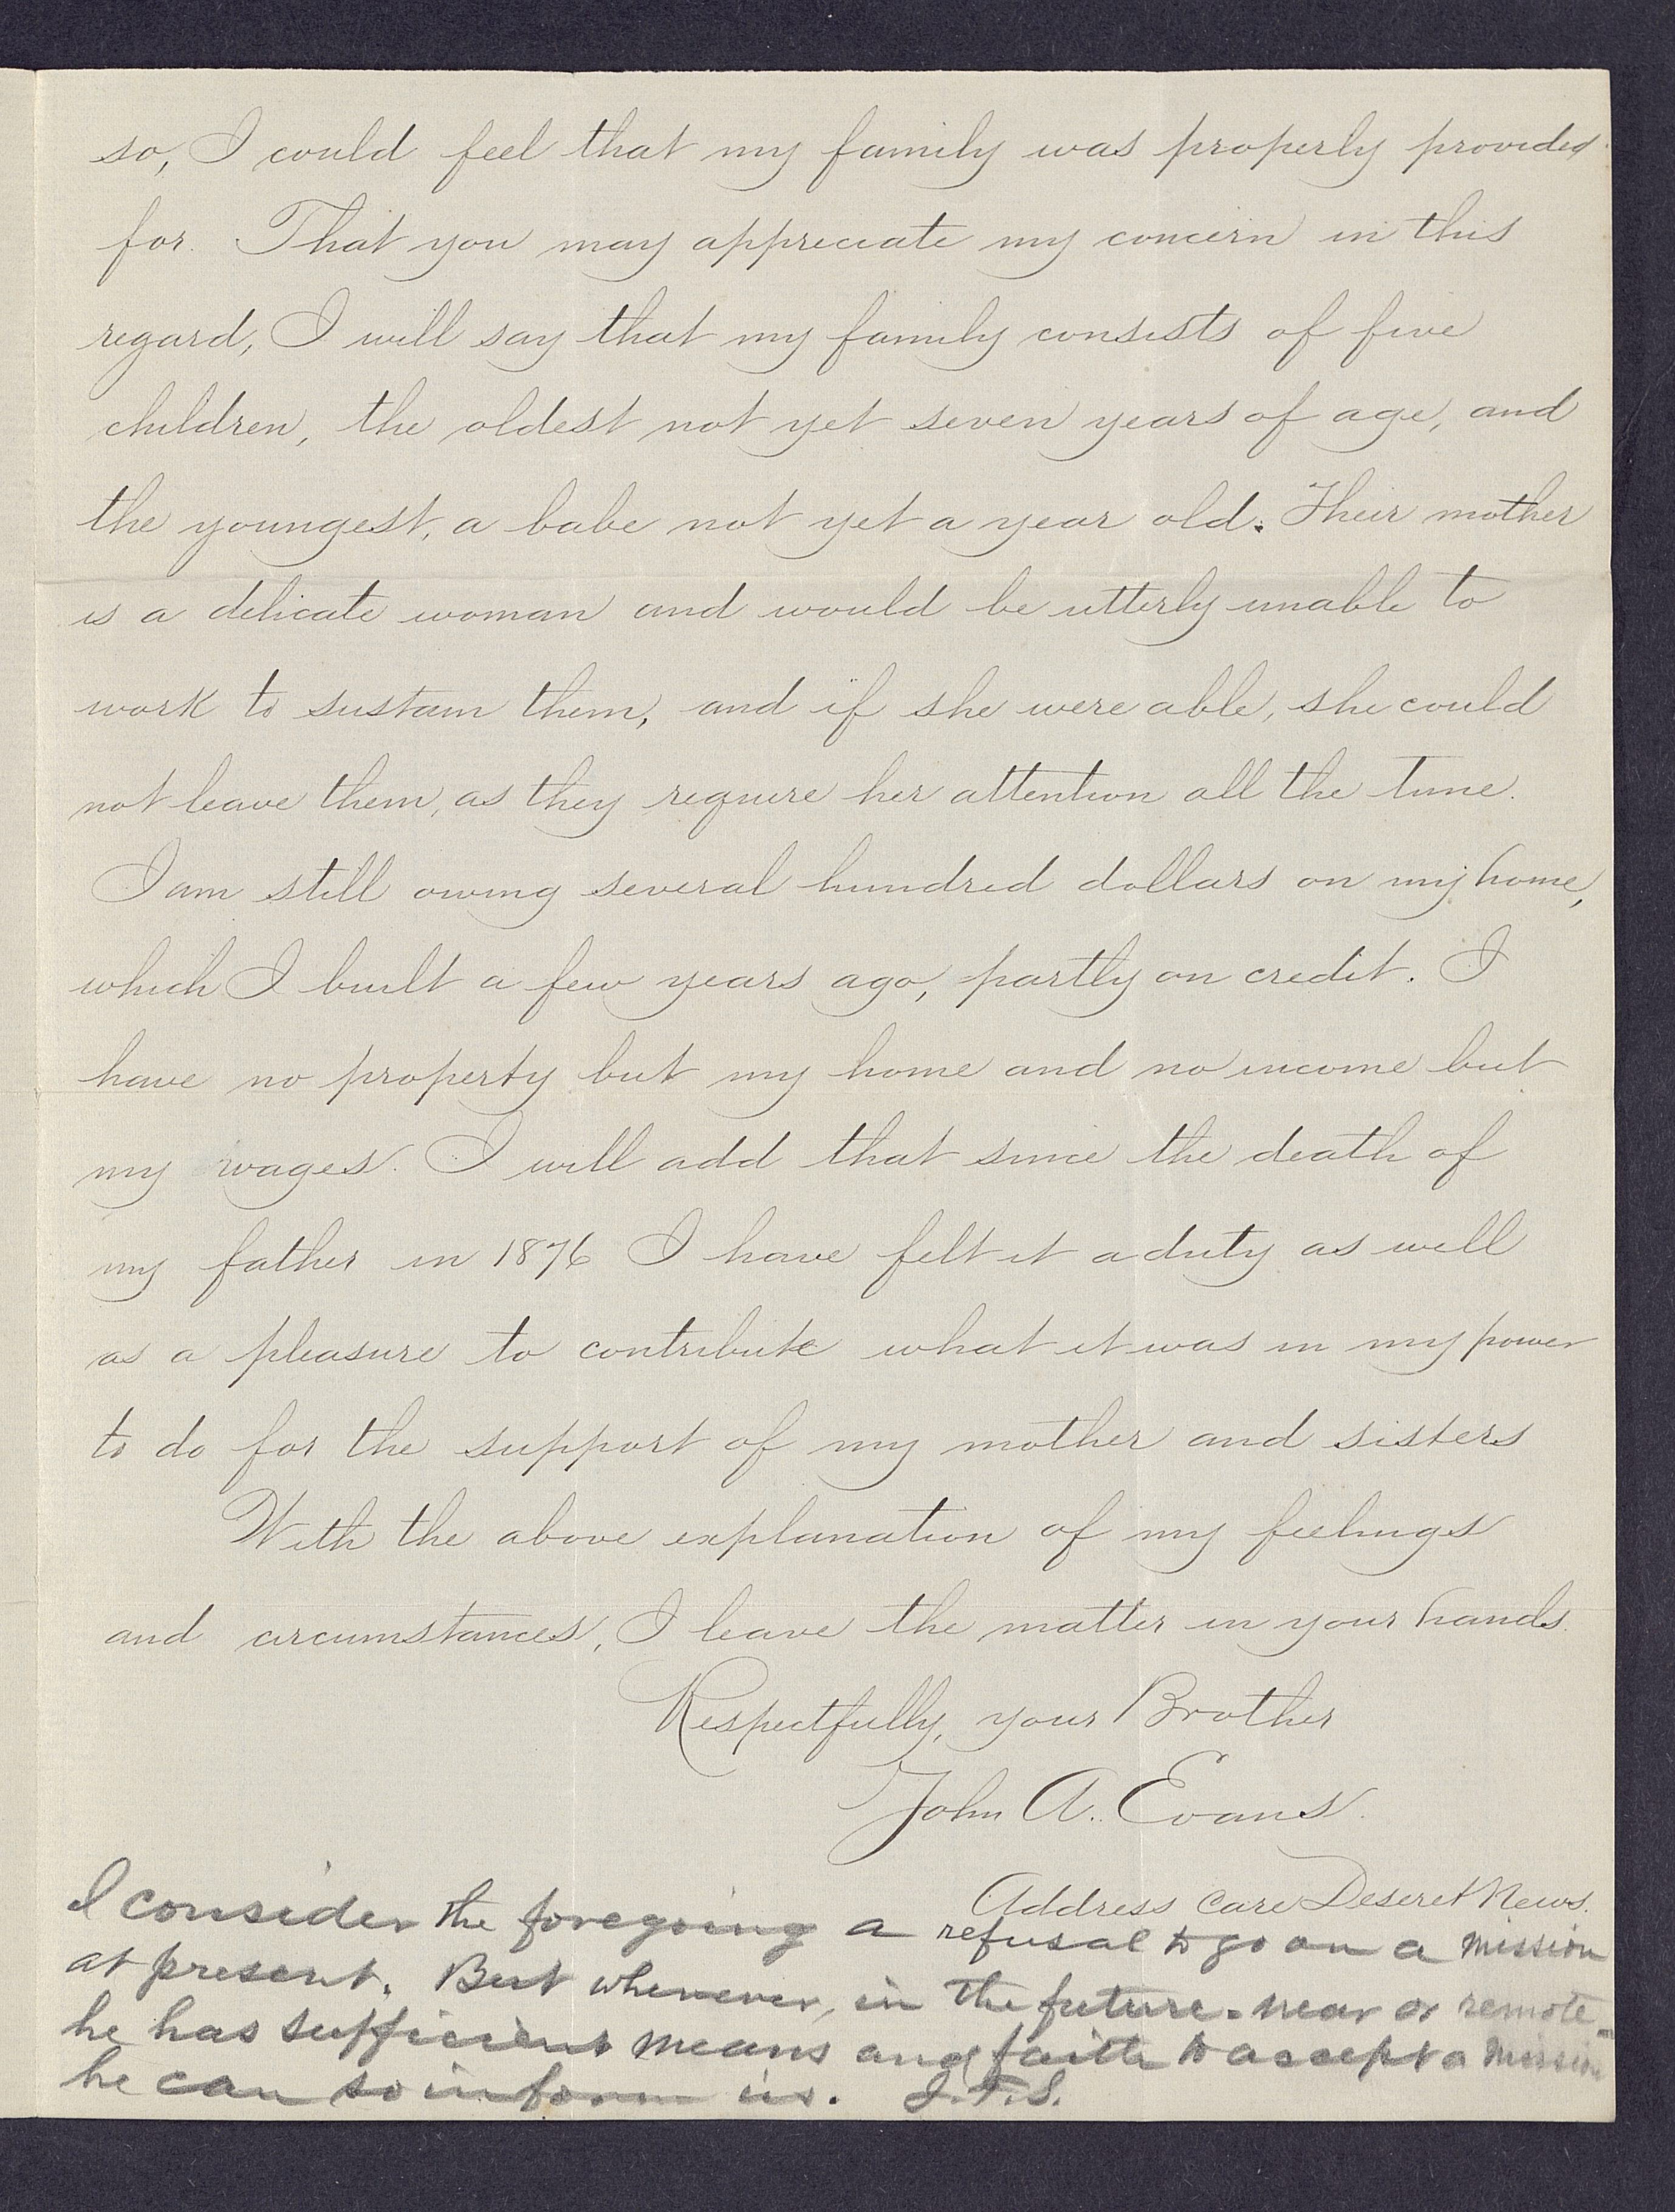 so, I could feel that my family was properly provided
for. That you may appreciate my concern in this
regard, I will say that my family consists of five
children, the oldest not yet seven years of age, and
the youngest, a babe not yet a year old. Their mother
is a delicate woman and would be utterly unable to
work to sustain them, and if she were able, she could
not leave them, as they require her attention all the time.
I am still owing several hundred dollars on my home,
which I built a few years ago, partly on credit. I
have no property but my home and no income but
my wages. I will add that since the death of
my father in 1876 I have felt it a duty as well
as a pleasure to contribute what it was in my power
to do for the support of my mother and sisters
With the above explanation of my feelings
and circumstances, I leave the matter in your hands.
Respectfully, your Brother
John A. Evans.
Address care Deseret News.
I consider the foregoing a refusal to go on a mission
at present. But whenever, in the future - near or remote -
he has sufficient means and faith to accept a mission
he can so inform us. J.F.S.